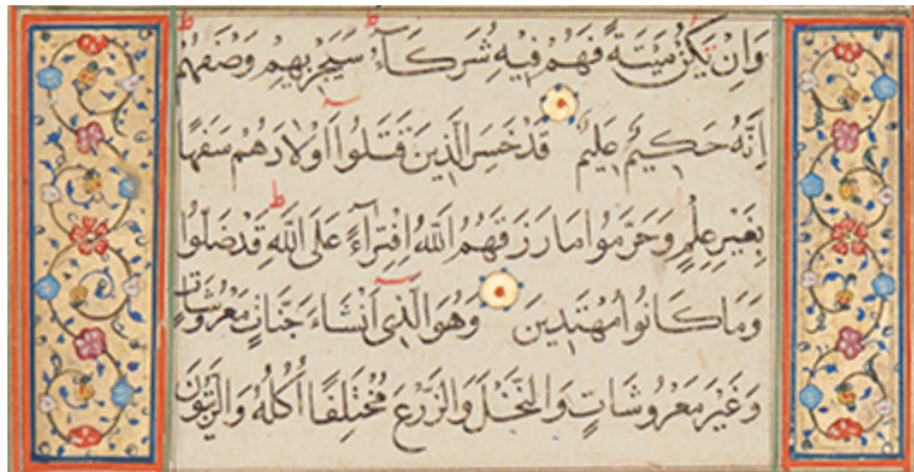 وَاِنْ يَكُنْ مَيْتَةً فَهُمْ فِيهِ شُرَكَآءُ سَيَجْزِيهِمْ وَصْفَهُمْ
اِنَّهُ حَكِيمٌ عَلِيمٌ قَدْ خَسِرَ الَّذِينَ قَتَلُوا اَوْلَادَهُمْ سَفَهًا
بِغَيْرِ عِلْمٍ وَحَرَّمُوا مَا رَزَقَهُمُ اللّٰهُ افْتِرَآءً عَلَى اللّٰهِ قَدْ ضَلُّوا
وَمَا كَانُوا مُهْتَدِينَ وَهُوَ الَّذِي اَنْشَاءَ جَنَّاتٍ مَعْرُوشَاتٍ
وَغَيْرَ مَعْرُوشَاتٍ وَالنَّخْلَ وَالزَّرْعَ مُخْتَلِفًا اُكُلُهُ وَالزَّيْتُونَ